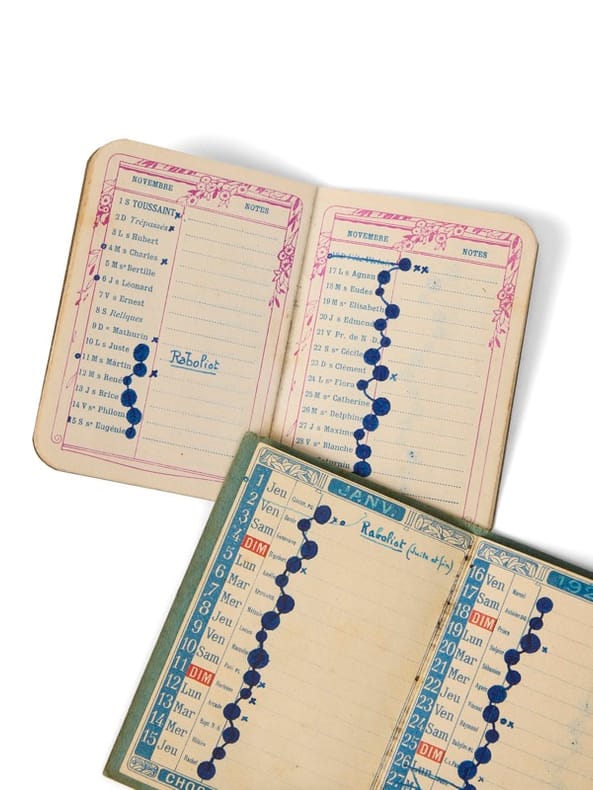 NOVEMBRE
NOTES
1 S TOUSSAINT
2 D Trépassés
3 L s Hubert
4 M s Charles
5 M sᵉ Bertille
6 J s Léonard
7 V s Ernest
8 S Reliques
9 D s Mathurin
10 L s Juste
11 M s Martin
12 M s René
13 J s Brice
14 V sᵉ Philom
15 S sᵉ Eugénie
Raboliot
NOVEMBRE
NOTES
17 L s Agnan
18 M s Eudes
19 M sᵉ Elisabeth
20 J s Edmond
21 V Pr. de N. D.
22 S sᵉ Cécile
23 D s Clément
24 L sᵉ Flora
25 M sᵉ Catherine
26 M sᵉ Delphine
27 J s Maxime
28 V sᵉ Blanche
Saturnin
JANV.
1 Jeu
2 Ven
3 Sam
4 DIM
5 Lun
6 Mar
7 Mer
8 Jeu
9 Ven
10 Sam
11 DIM
12 Lun
13 Mar
14 Mer
15 Jeu
Raboliot (suite et fin)
CHOC
192
16 Ven Marcel
17 Sam
18 DIM
19 Lun
20 Mar
21 Mer
22 Jeu
23 Ven
24 Sam
25 DIM
26 Lun
27